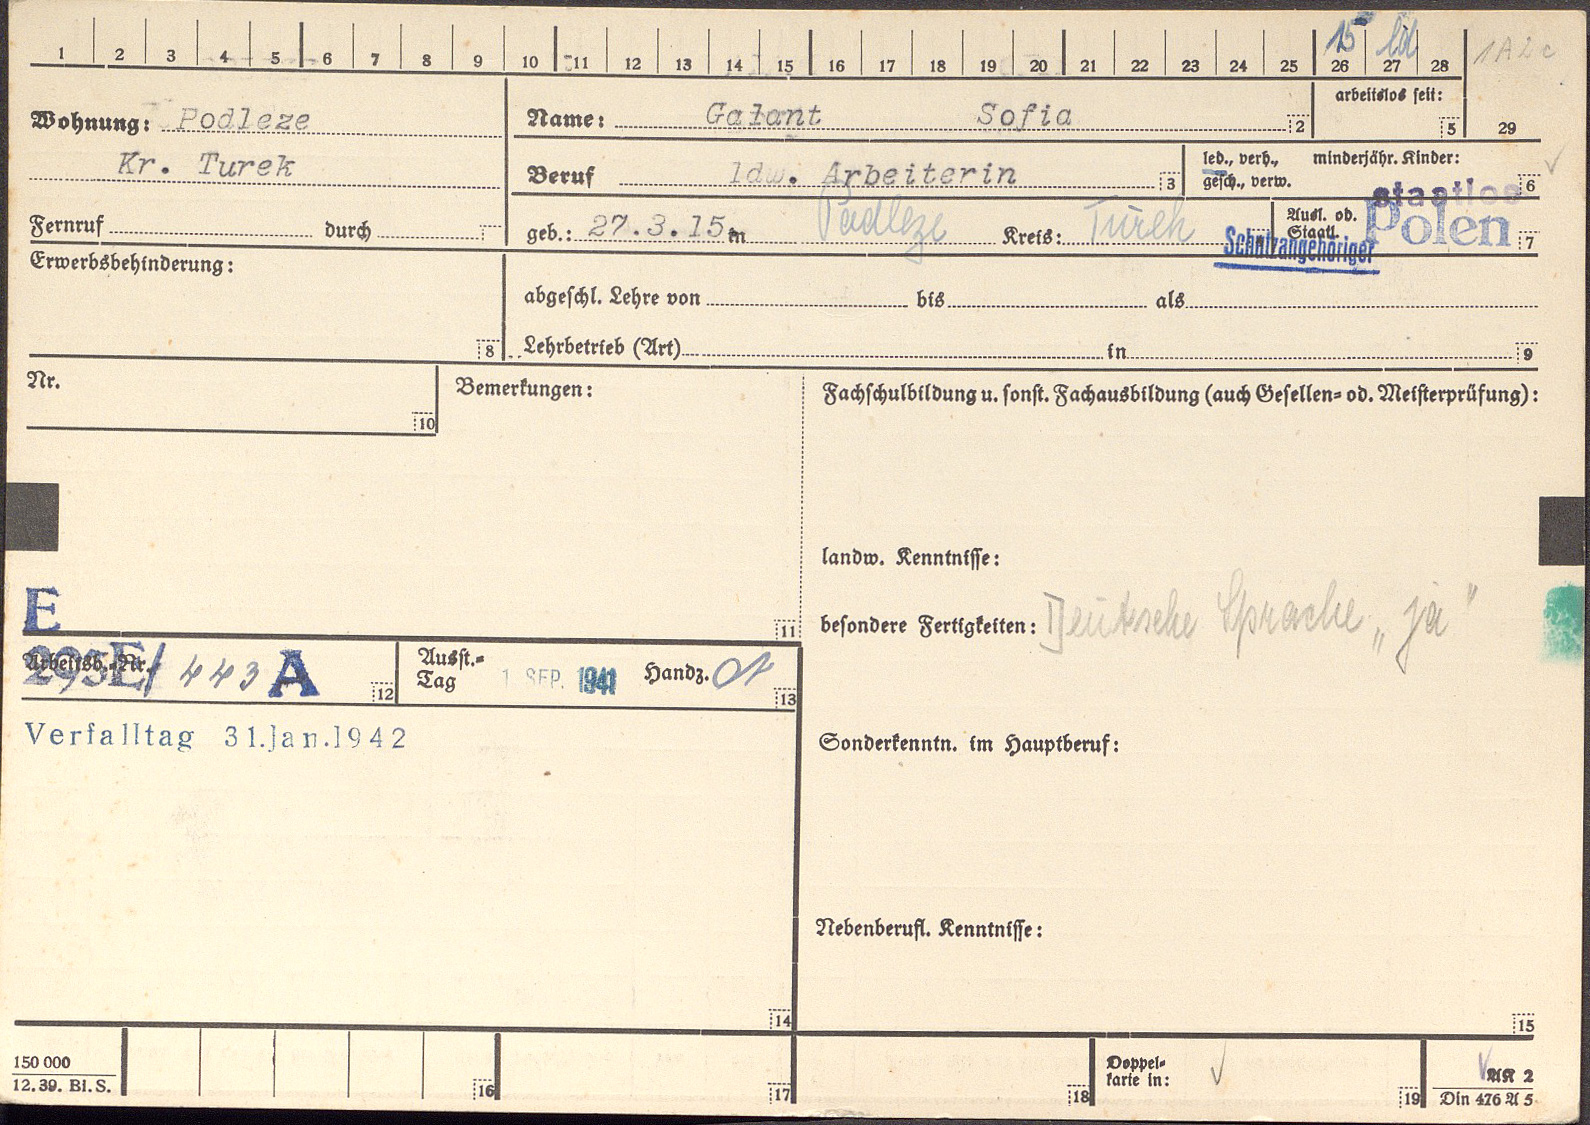 1 2 3 4 5 6 7 8 9 10 11 12 13 14 15 16 17 18 19 20 21 22 23 24 25 26 27 28
15 1A2c
Wohnung: Podleze
Kr. Turek
Fernruf durch
Name: Gałant Sofia 2
arbeitslos seit: 5
29
Beruf ldw. Arbeiterin 3
led., verh., minderjähr. Kinder:
gesch., verw. 6
staatlos
geb.: 27.3.15. in Padleze Kreis: Turek
Ausl. od.
Staatl. Polen 7
Schutzangehöriger
Erwerbsbehinderung:
8
abgeschl. Lehre von bis als
Lehrbetrieb (Art) in 9
Nr.
10
Bemerkungen:
E
11
Fachschulbildung u. sonst. Fachausbildung (auch Gesellen- od. Meisterprüfung):
landw. Kenntnisse:
besondere Fertigkeiten: Deutsche Sprache „ja"
Arbeitsb.-Nr.
295E/ 443 A 12
Ausst.-
Tag 1. SEP. 1941 Handz. 13
Verfalltag 31.Jan.1942
14
Sonderkenntn. im Hauptberuf:
Nebenberufl. Kenntnisse:
15
150 000
12.39. Bl.S.
16 17 18
Doppel-
karte in: 19
AK 2
Din 476 A 5